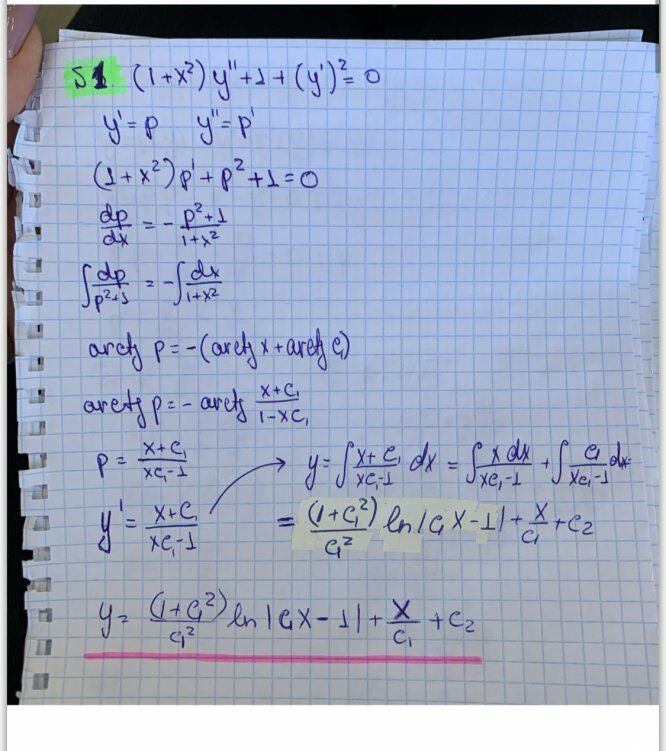 51. (1+x²)y''+1+(y')²=0
y'=p y''=p'
(1+x²)p'+p²+1=0
dp/dx = - (p²+1)/(1+x²)
∫ dp/(p²+1) = -∫ dx/(1+x²)
arctg p = -(arctg x + arctg C₁)
arctg p = - arctg (x+C₁)/(1-xC₁)
p = (x+C₁)/(xC₁-1)
y' = (x+C₁)/(xC₁-1)
y = ∫ (x+C₁)/(xC₁-1) dx = ∫ x dx/(xC₁-1) + ∫ C₁/(xC₁-1) dx =
= (1+C₁²)/C₁² ln|C₁x-1| + x/C₁ + C₂
y = (1+C₁²)/C₁² ln|C₁x-1| + x/C₁ + C₂